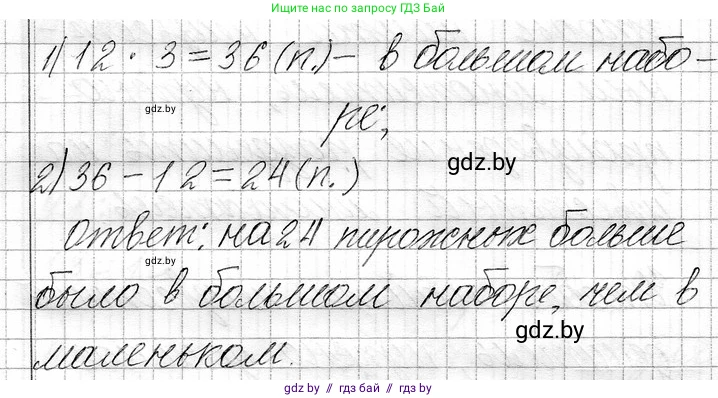 Ищите нас по запросу ГДЗ Бай
1) 12 · 3 = 36 (п.) - в большом набо-
gdz.by
ре;
2) 36 - 12 = 24 (п.)
gdz.by
Ответ: на 24 пирожных больше
gdz.by
было в большом наборе, чем в
gdz.by
маленьком.
gdz.by // гдз бай // гдз.бу